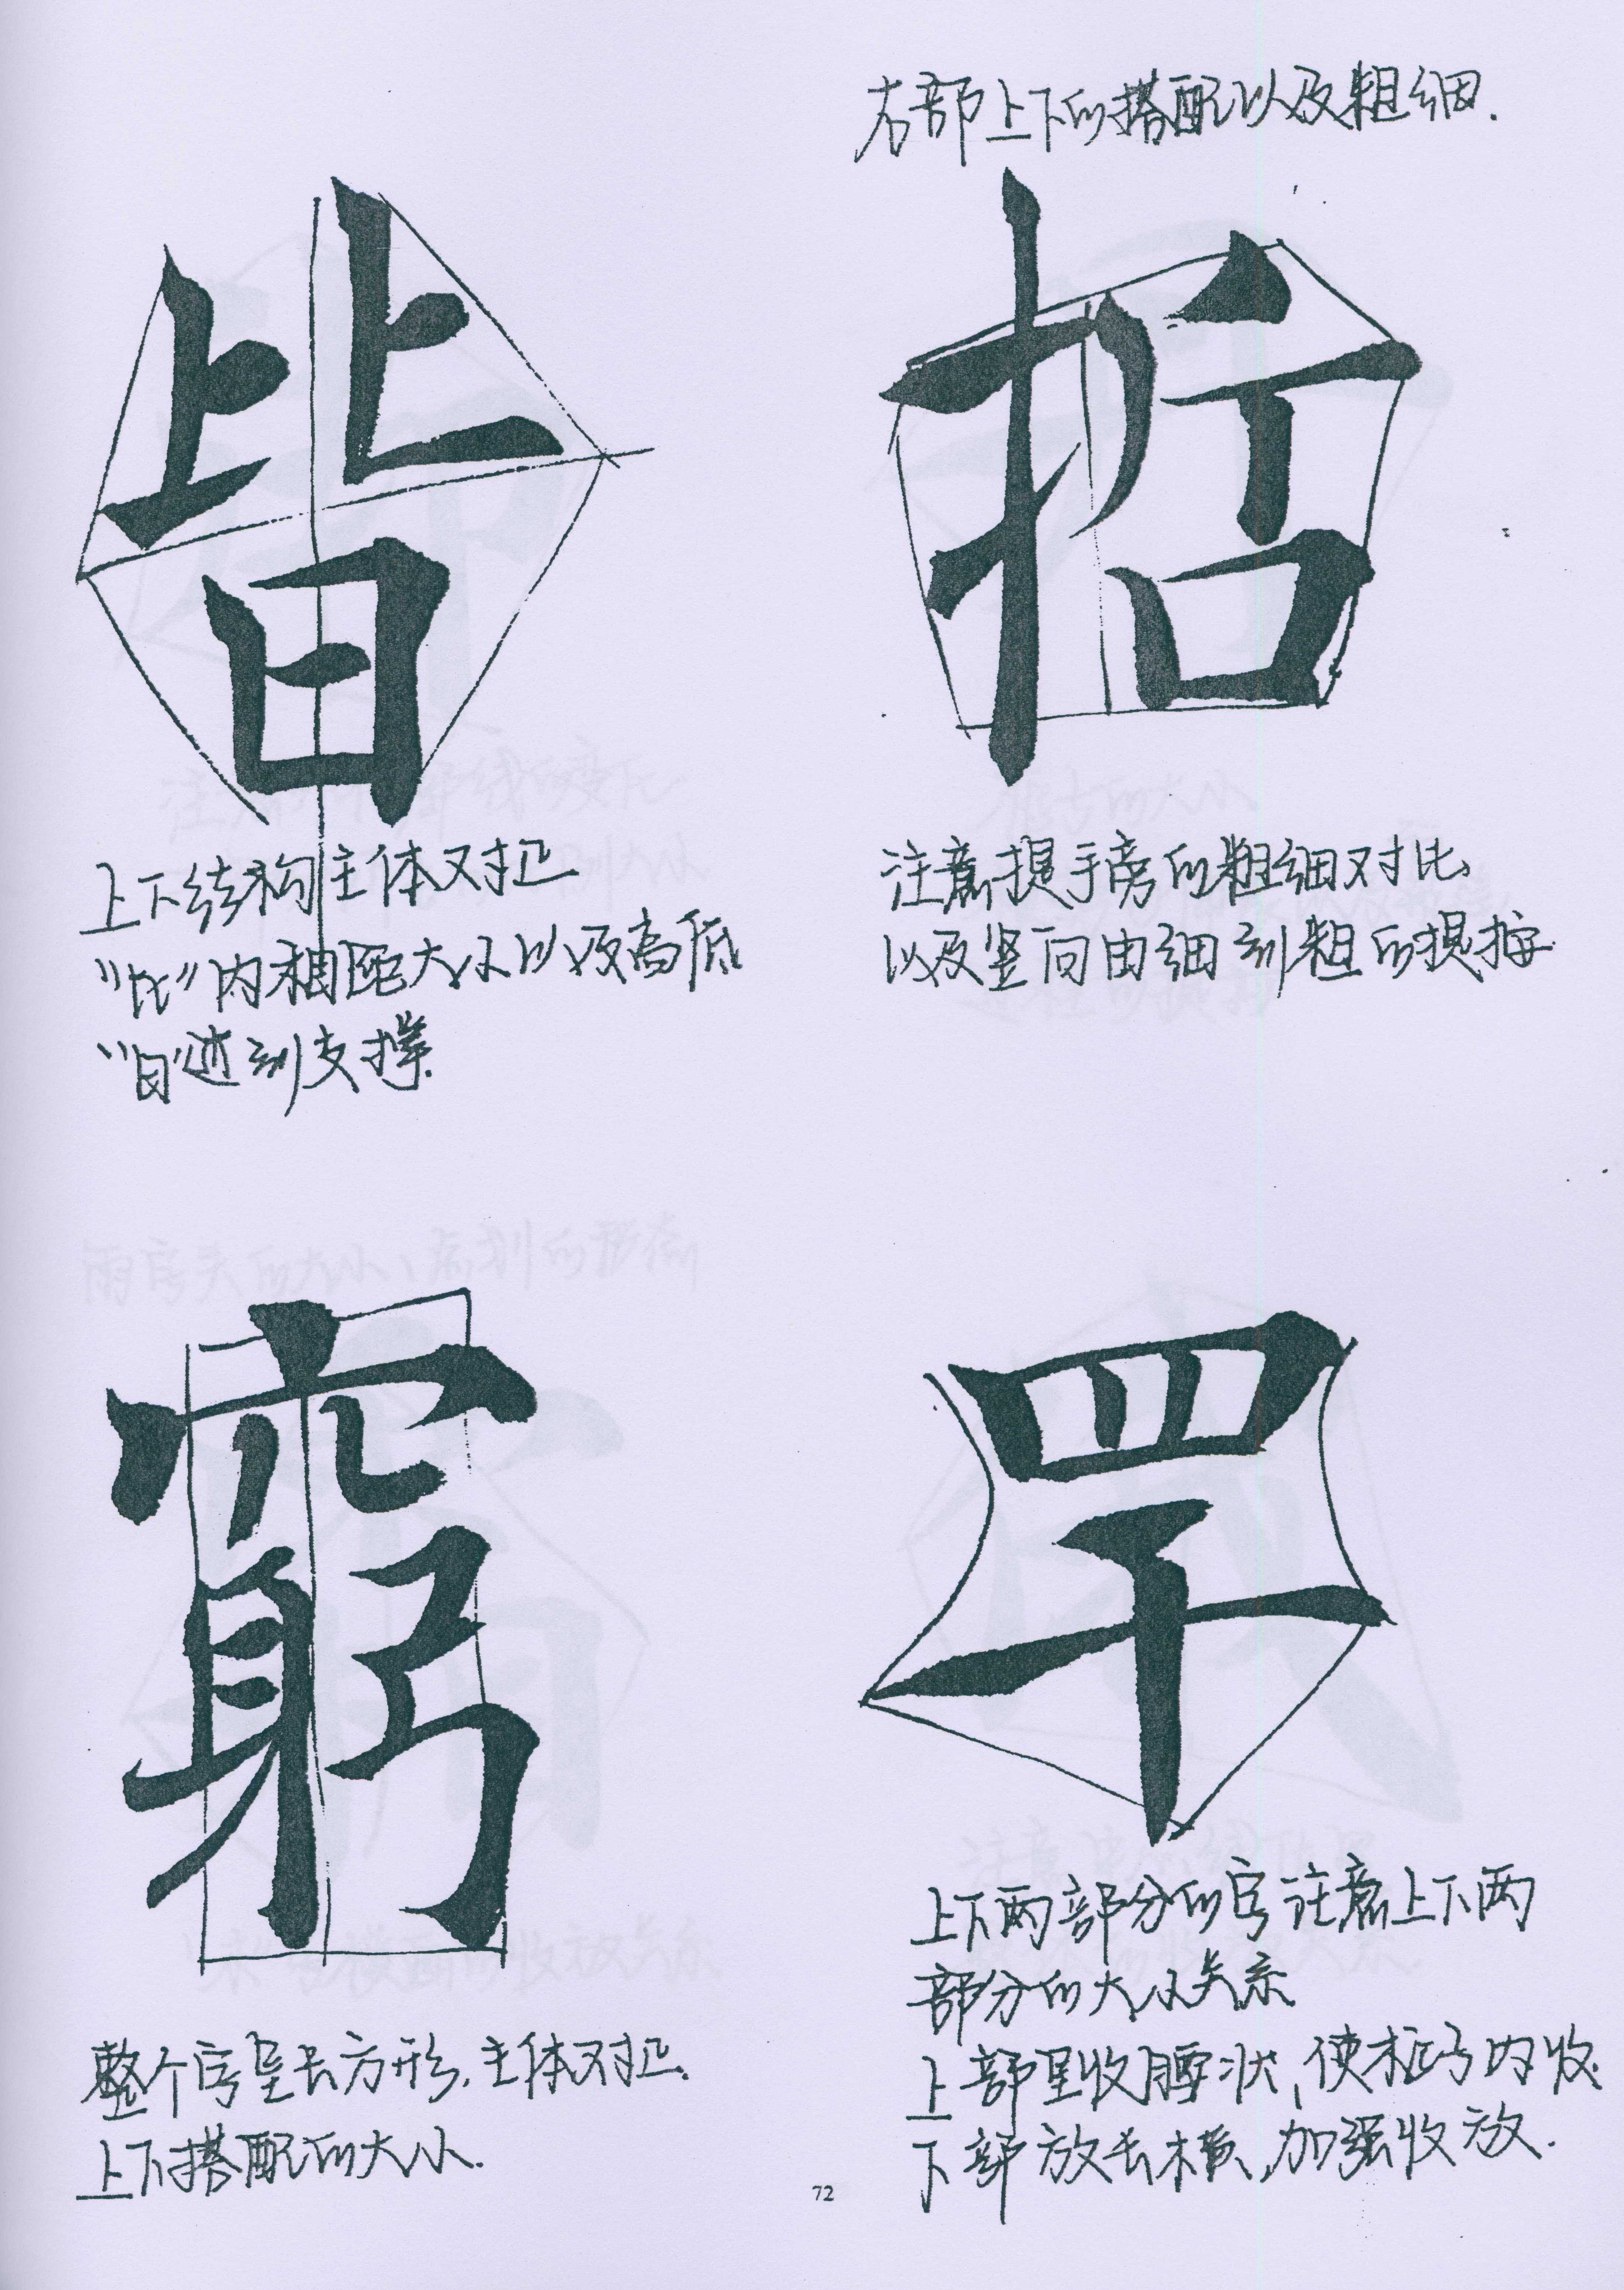 右部上下的搭配以及粗细.
皆
上下结构主体对正
“比”内相距大小以及高低
“日”起到支撑.
注意提手旁的粗细对比
以及竖向由细到粗的提按.
窮
整个字呈长方形.主体对正.
上下搭配的大小.
罕
上下两部分的字注意上下两
部分的大小关系
上部呈收腰状,使框子内收.
下部放长横,加强收放.
72